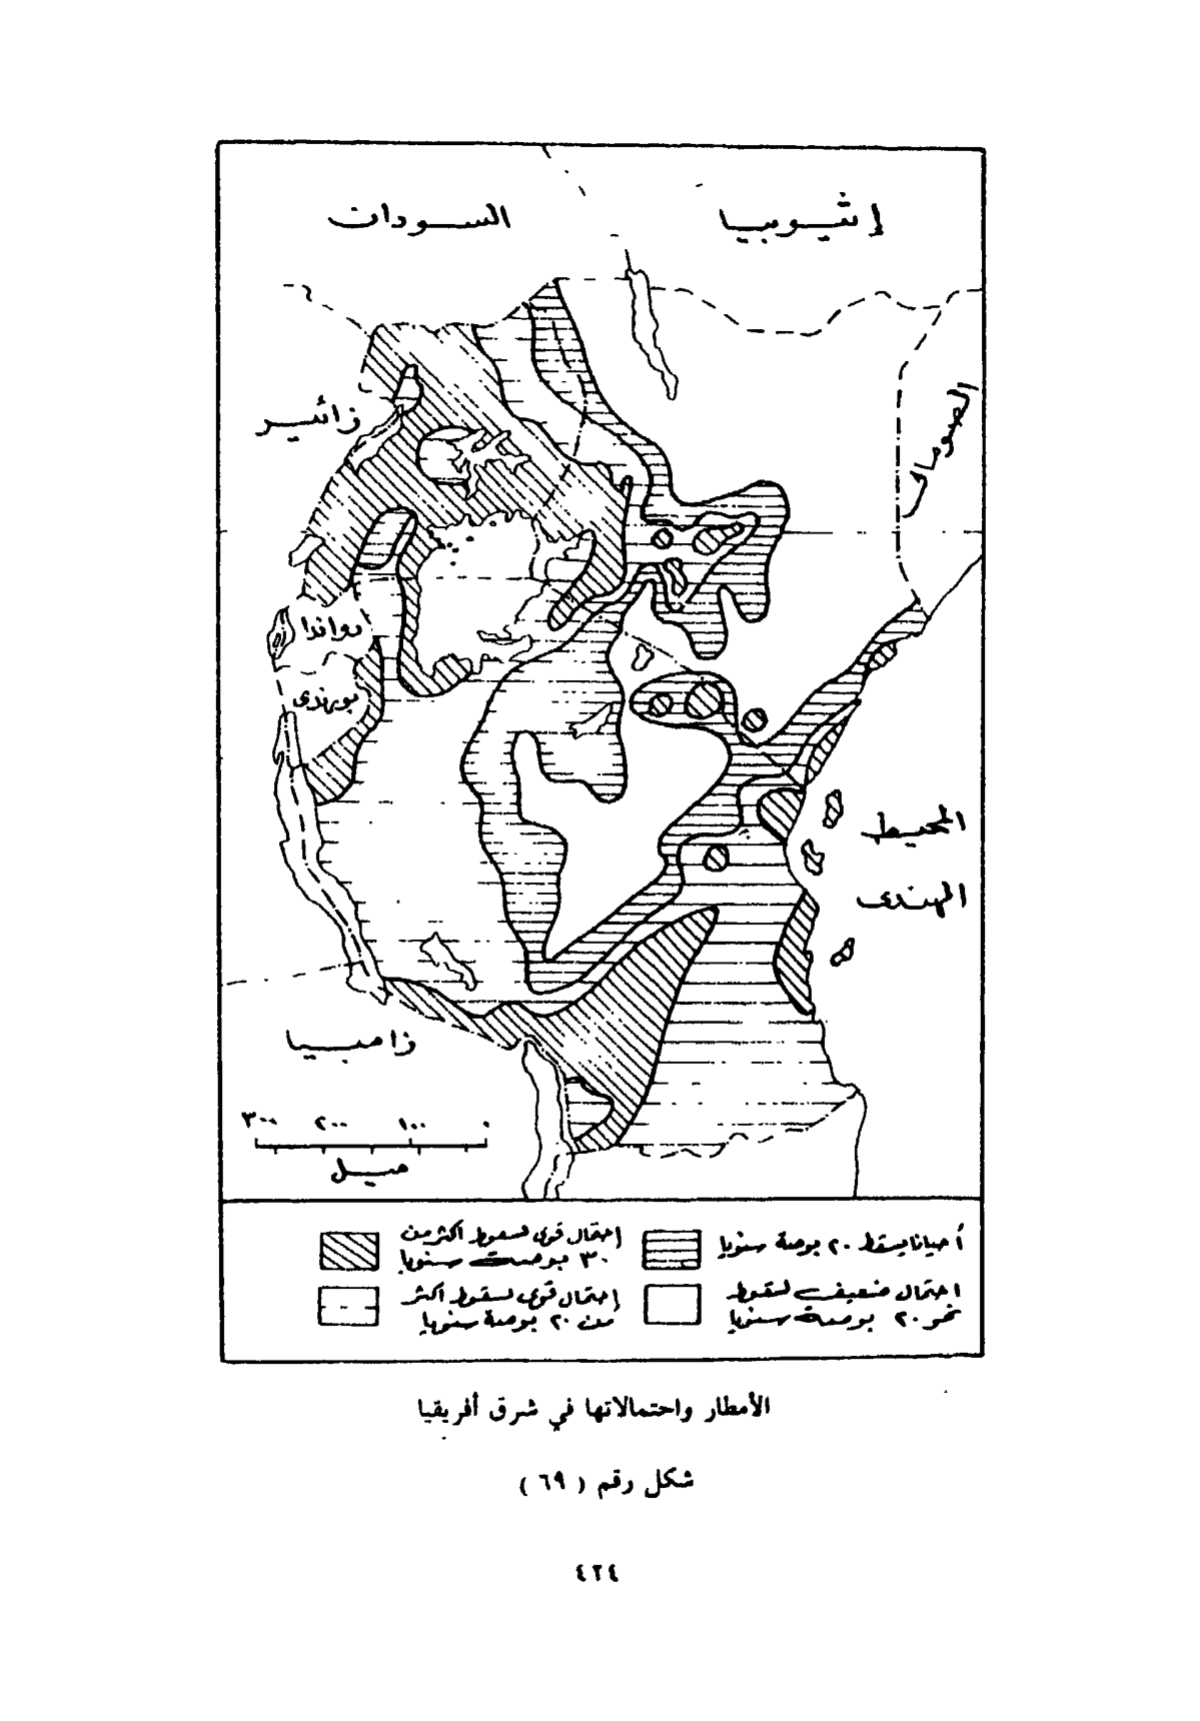 إثيوبيا
السودان
الصومال
زائير
رواندا
بورندى
المحيط
الهندى
زامبيا
٣٠٠ ٢٠٠ ١٠٠ ٠
ميل
أحيانا يسقط ٢٠ بوصة سنويا
إحتمال قوى لسقوط أكثر من
٣٠ بوصة سنويا
احتمال ضعيف لسقوط
نحو ٢٠ بوصة سنويا
إحتمال قوى لسقوط أكثر
من ٢٠ بوصة سنويا
الأمطار واحتمالاتها في شرق أفريقيا
شكل رقم ( ٦٩ )
٤٢٤